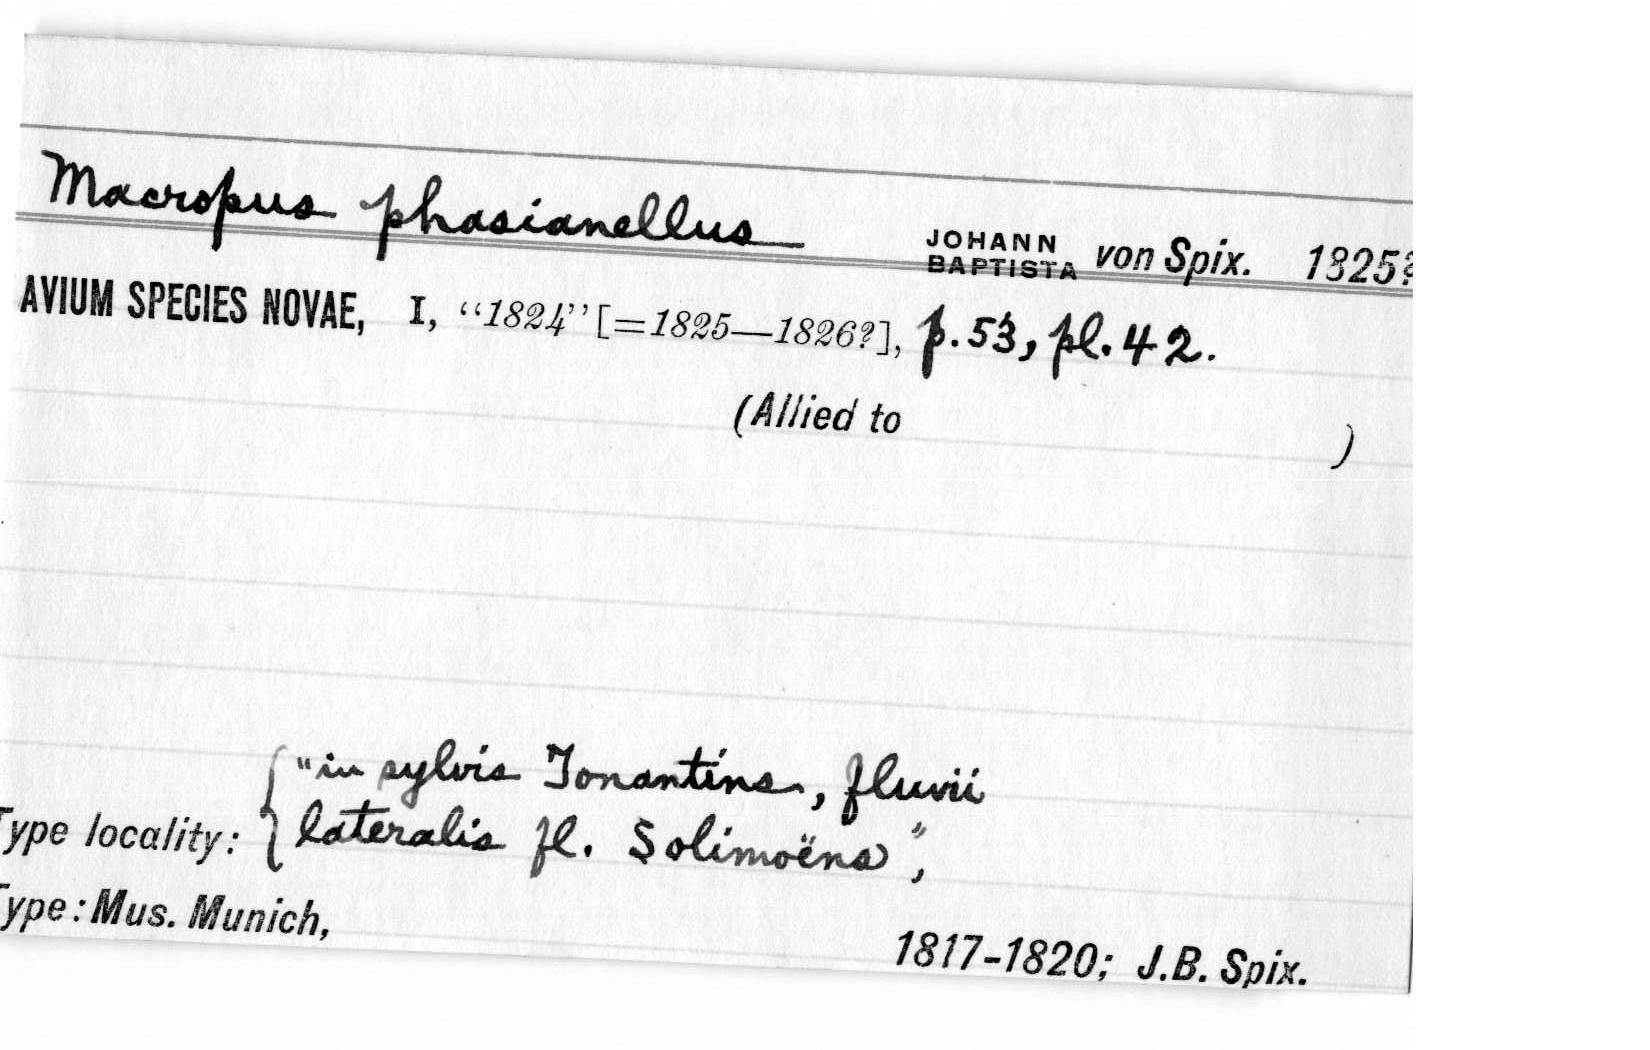 Macropus phasianellus JOHANN BAPTISTA von Spix. 1825?
AVIUM SPECIES NOVAE, I, “1824” [=1825—1826?], p. 53, pl. 42.
(Allied to )
"in sylvis Tonantins, fluvii
Type locality: { lateralis fl. Solimoëns",
Type: Mus. Munich,
1817-1820; J.B. Spix.